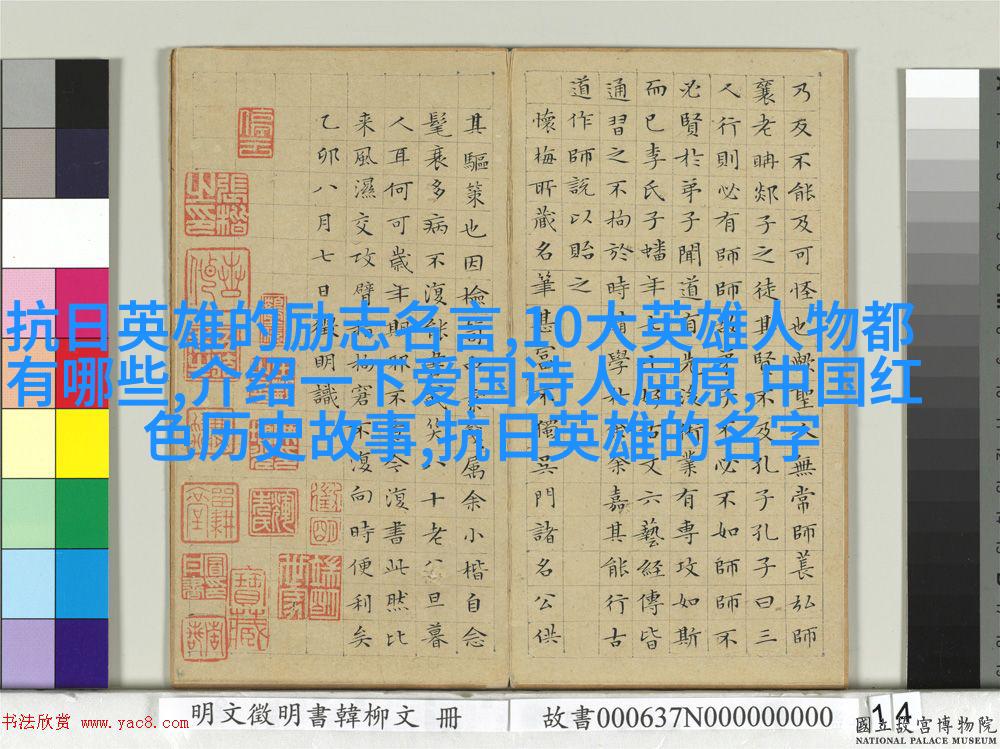 抗日英雄的励志名言,10大英雄人物都
有哪些,介绍一下爱国诗人屈原,中国红
色历史故事,抗日英雄的名字
乃反不能及可怪也歟聖人無常師萇弘師
襄老聃郯子之徒其賢不及孔子孔子曰三
人行則必有師師不必不如師師不
必賢於弟子聞道有先後術業有專攻如斯
而已李氏子蟠年好古文六藝經傳皆
通習之不拘於時請學於余嘉其能行古
道作師說以貽之
懷梅所藏名筆甚富不獨吳門諸名公供
其驅策也因檢屬余小楷自念
髦衰多病不復能書矣八十老公旦暮
人耳何可歲年期邪不今復書此然比
来風濕交攻臂指拘窘不復向時便利矣
乙卯八月七日徵明識
明文徵明書韓柳文 冊
故書000637N000000000
14
书法欣赏 www.yac8.com
國立故宮博物院
NATIONAL PALACE MUSEUM